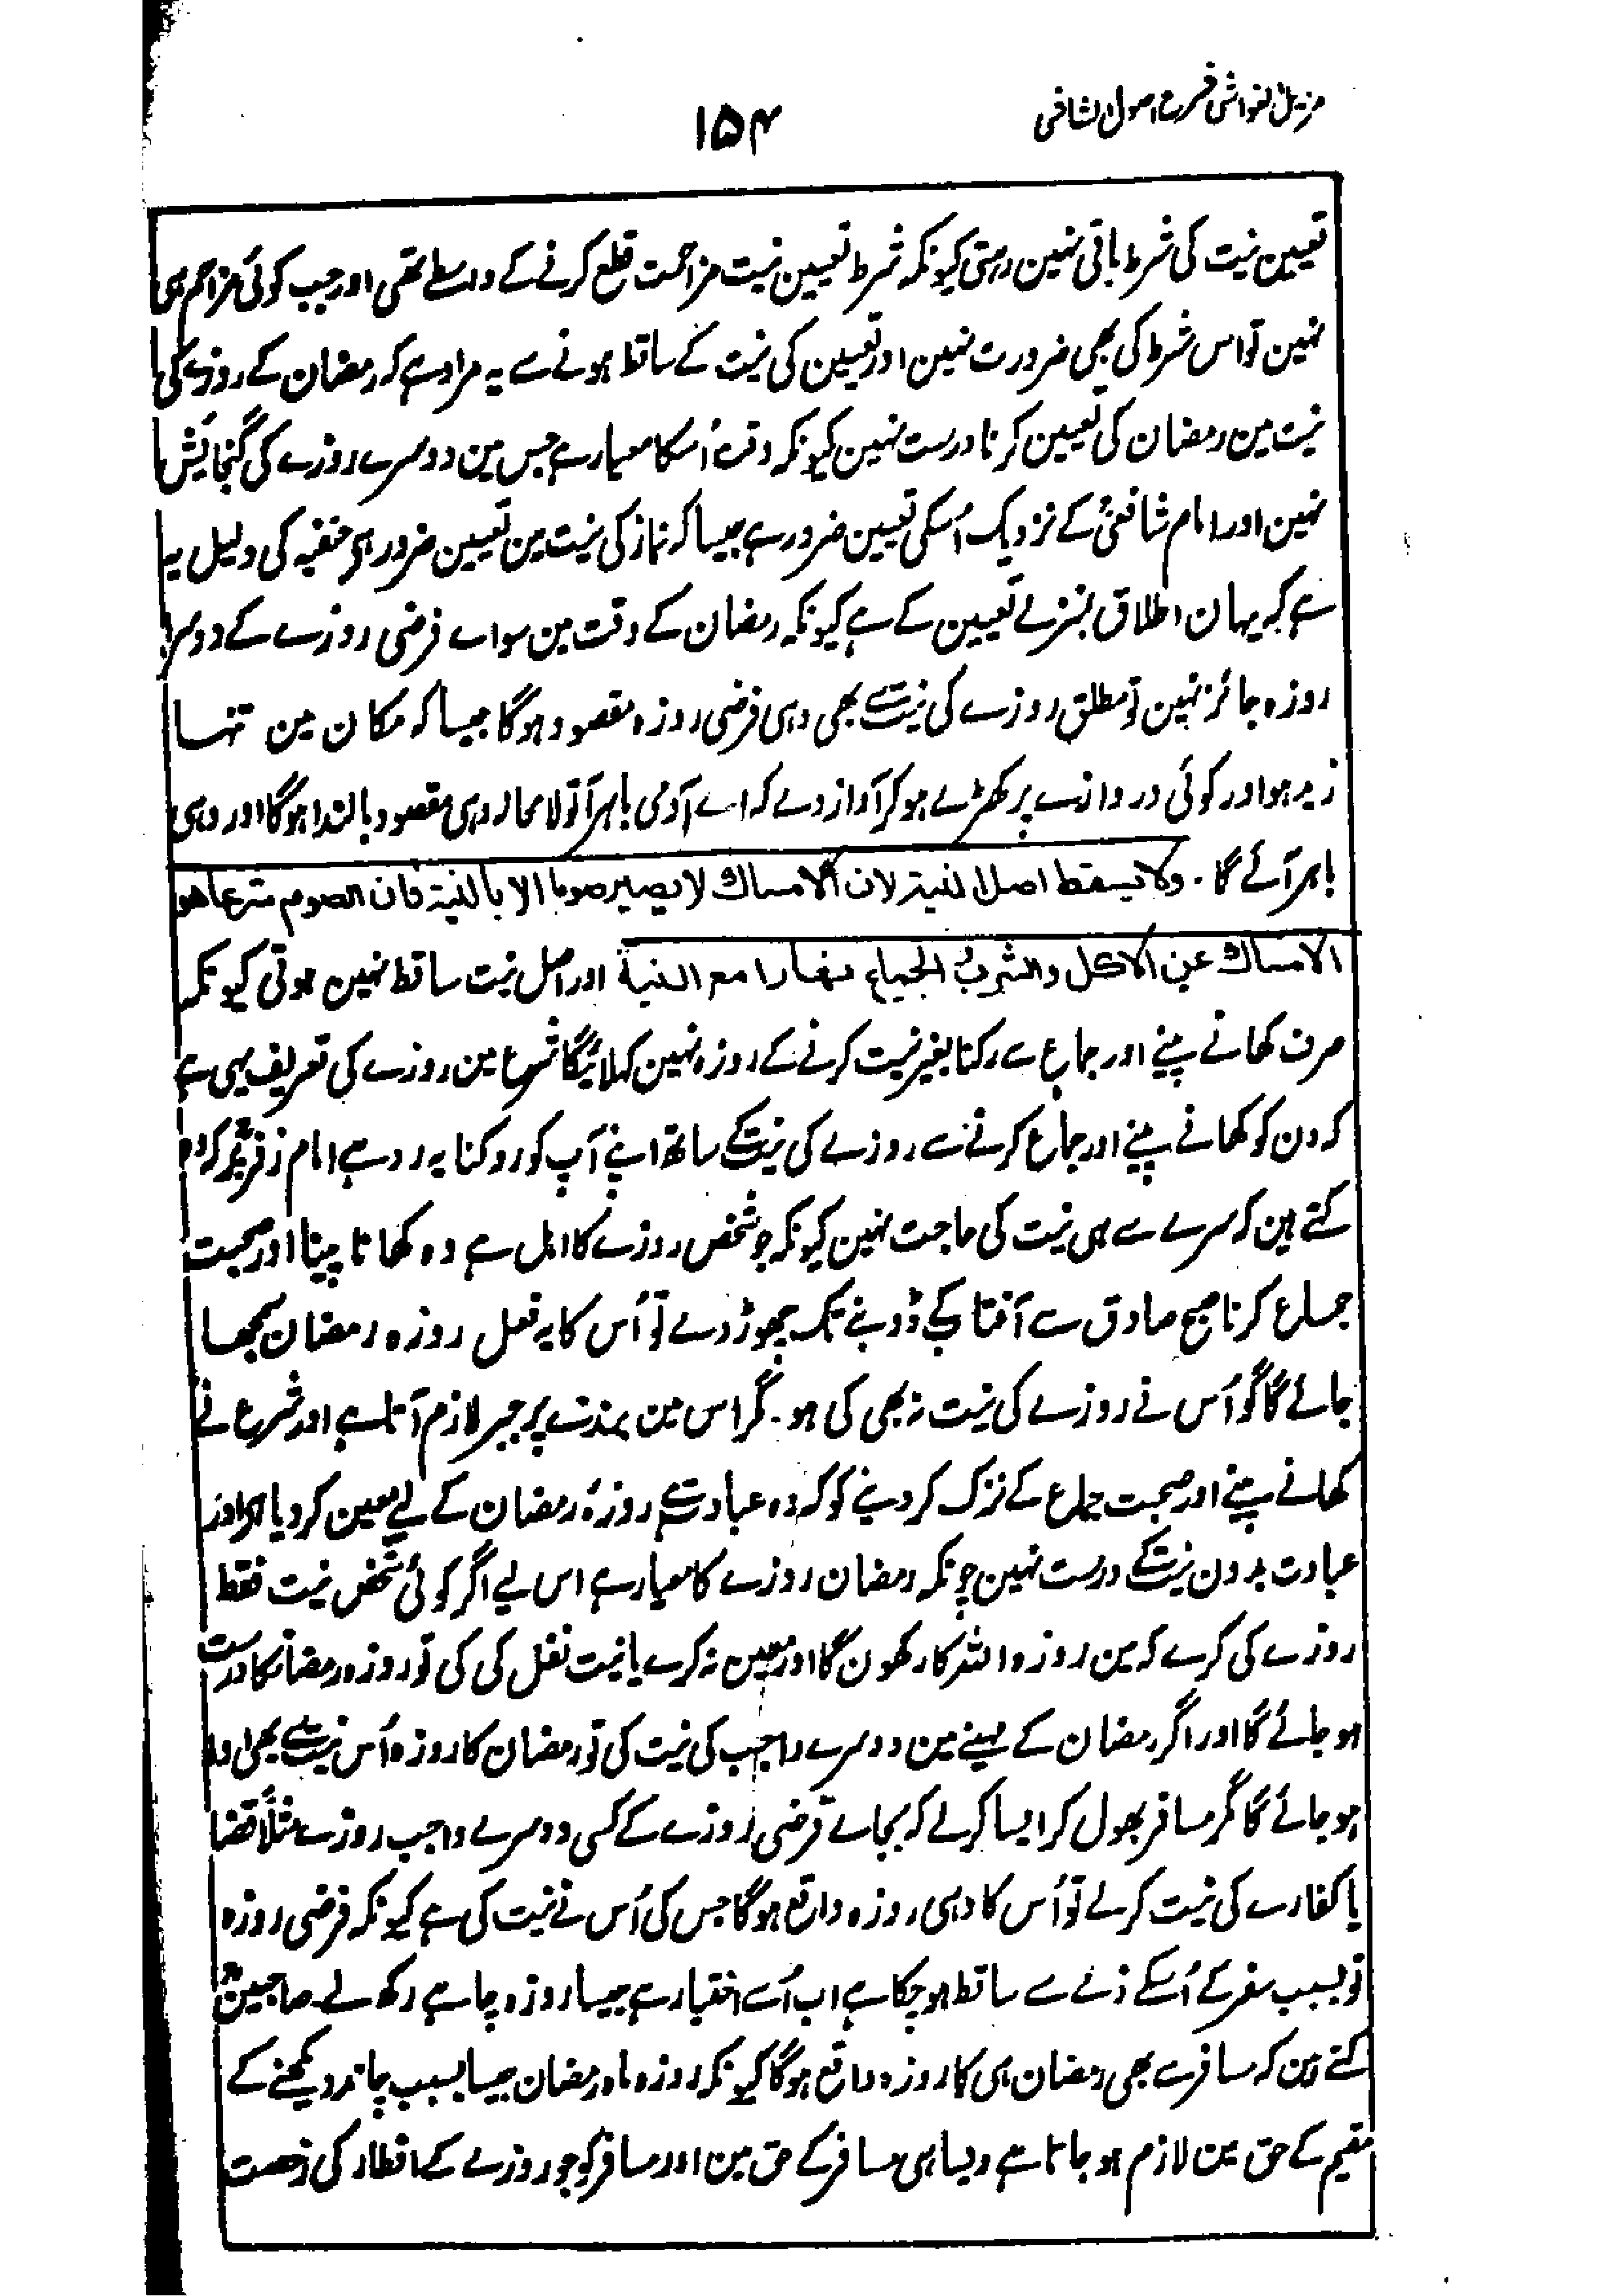 مزیل الغواشی شرح اصول الشاشی
۱۵۴
تعیین نیت کی شرط باقی نہین رہتی کیونکہ شرط تعیین نیت مزاحمت قطع کرنے کے واسطے تھی اور جب کوئی مزاحم ہی
نہین تو اس شرط کی بھی ضرورت نہین اور تعیین کی نیت کے ساقط ہونے سے یہ مراد ہے کہ رمضان کے روزے کی
نیت مین رمضان کی تعیین کرنا درست نہین کیونکہ وقت اُسکا معیار ہے جس مین دوسرے روزے کی گنجایش
نہین اور امام شافعیؒ کے نزدیک اُسکی تعیین ضرور ہے جیسا کہ نماز کی نیت مین تعیین ضرور ہی حنفیہ کی دلیل یہ
ہے کہ یہان اطلاق بمنزلے تعیین کے ہے کیونکہ رمضان کے وقت مین سواے فرضی روزے کے دوسرا
روزہ جائز نہین تو مطلق روزے کی نیت سے بھی وہی فرضی روزہ مقصود ہوگا جیسا کہ مکان مین تنہا
زید ہو اور کوئی دروازے پر کھڑے ہو کر آواز دے کہ اے آدمی باہر آ تو لا محالہ وہی مقصود بالندا ہوگا اور وہی
باہر آئے گا۔ ولا یسقط اصل النیة لان الامساك لا یصیر صوما الا بالنیة فان الصوم شرعا هو
الامساك عن الاكل والشرب والجماع نهارا مع النیة اور اصل نیت ساقط نہین ہوتی کیونکہ
صرف کھانے پینے اور جماع سے رکنا بغیر نیت کرنے کے روزہ نہین کہلائیگا شرعا مین روزے کی تعریف یہی ہے
کہ دن کو کھانے پینے اور جماع کرنے سے روزے کی نیت کے ساتھ اپنے آپ کو روکنا یہ رد ہے امام زفرؒ پر کہ وہ
کہتے ہین کہ سرے سے ہی نیت کی حاجت نہین کیونکہ جو شخص روزے کا اہل ہے وہ کھانا پینا اور صحبت
جماع کرنا صبح صادق سے آفتاب کے ڈوبنے تک چھوڑ دے تو اُس کا یہ فعل روزہ رمضان سمجھا
جائے گا گو اُس نے روزے کی نیت نہ بھی کی ہو۔ مگر اس مین بندے پر جبر لازم آتا ہے اور شرع نے
کھانے پینے اور صحبت جماع کے ترک کر دینے کو کہ وہ عبادت ہے روزۂ رمضان کے لیے معین کر دیا ہی اور
عبادت بدون نیت کے درست نہین چونکہ رمضان روزے کا معیار ہے اس لیے اگر کوئی شخص نیت فقط
روزے کی کرے کہ مین روزہ اللہ کا رکھون گا اور معین نہ کرے یا نیت نفل کی کی تو روزہ رمضان کا درست
ہو جائے گا اور اگر رمضان کے مہینے مین دوسرے واجب کی نیت کی تو رمضان کا روزہ اُس نیت سے بھی ادا
ہو جائے گا مگر مسافر بھول کر ایسا کر لے کہ بجاے فرضی روزے کے کسی دوسرے واجب روزے مثلاً قضا
یا کفارے کی نیت کرلے تو اُس کا وہی روزہ واقع ہوگا جس کی اُس نے نیت کی ہے کیونکہ فرضی روزہ
تو بسبب سفر کے اُسکے ذمے سے ساقط ہو چکا ہے اب اُسے اختیار ہے جیسا روزہ چاہے رکھ لے۔ صاحبینؒ
کہتے ہین کہ مسافر سے بھی رمضان ہی کا روزہ واقع ہوگا کیونکہ روزہ ماہ رمضان جیسا بسبب چاند دیکھنے کے
مقیم کے حق مین لازم ہو جاتا ہے ویسا ہی مسافر کے حق مین اور مسافر کو جو روزے کے افطار کی رخصت